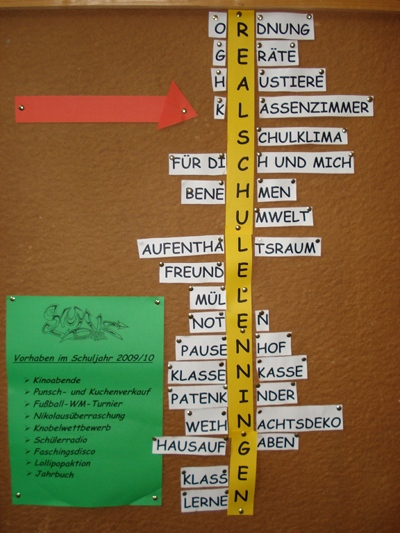 ORDNUNG
GERÄTE
HAUSTIERE
KLASSENZIMMER
SCHULKLIMA
FÜR DICH UND MICH
BENEHMEN
UMWELT
AUFENTHALTSRAUM
FREUNDE
MÜLL
NOTEN
PAUSENHOF
KLASSENKASSE
PATENKINDER
WEIHNACHTSDEKO
HAUSAUFGABEN
KLASSE
LERNEN
Vorhaben im Schuljahr 2009/10
Kinoabende
Punsch- und Kuchenverkauf
Fußball-WM-Turnier
Nikolausüberraschung
Knobelwettbewerb
Schülerradio
Faschingsdisco
Lollipopaktion
Jahrbuch